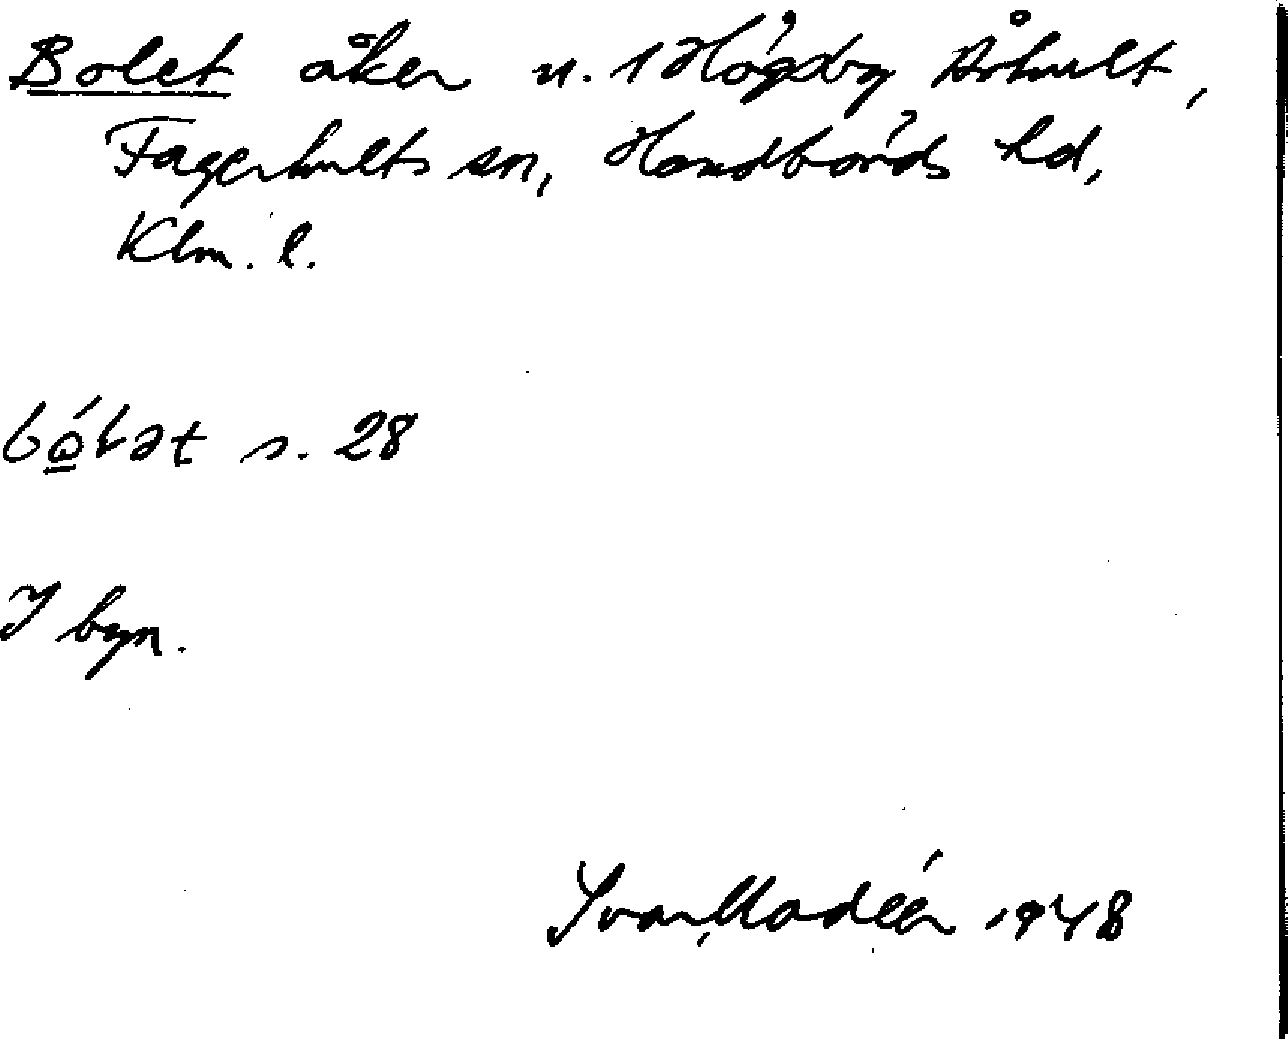 Bolet åker n. 1 Högsby Århult,
Fagerhults sn, Handbörds hd,
Klm. l.
bo̲´lət s. 28
I byn.
Ivar Modéer 1948